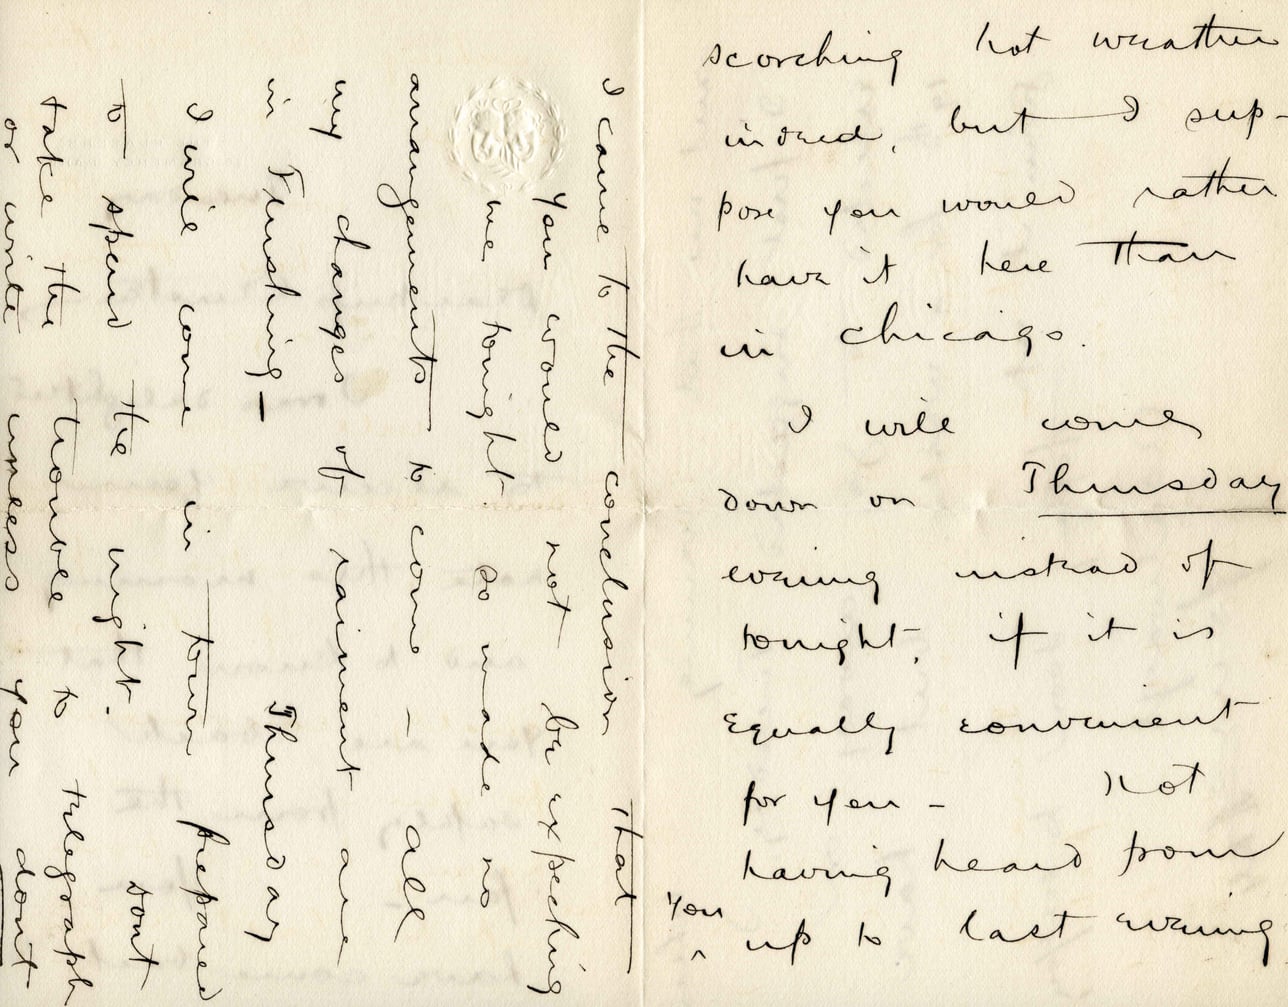 scorching hot weather
indeed, but I sup-
pose you would rather
have it here than
in Chicago.
I will come
down on Thursday
evening instead of
tonight, if it is
equally convenient
for you – Not
having heard from
you
^ up to last evening
I came to the conclusion that
you would not be expecting
me tonight. So made no
arrangements to come – all
my changes of raiment are
in Flushing – Thursday
I will come in town prepared
to spend the night. Dont
take the trouble to telegraph
or write unless you dont